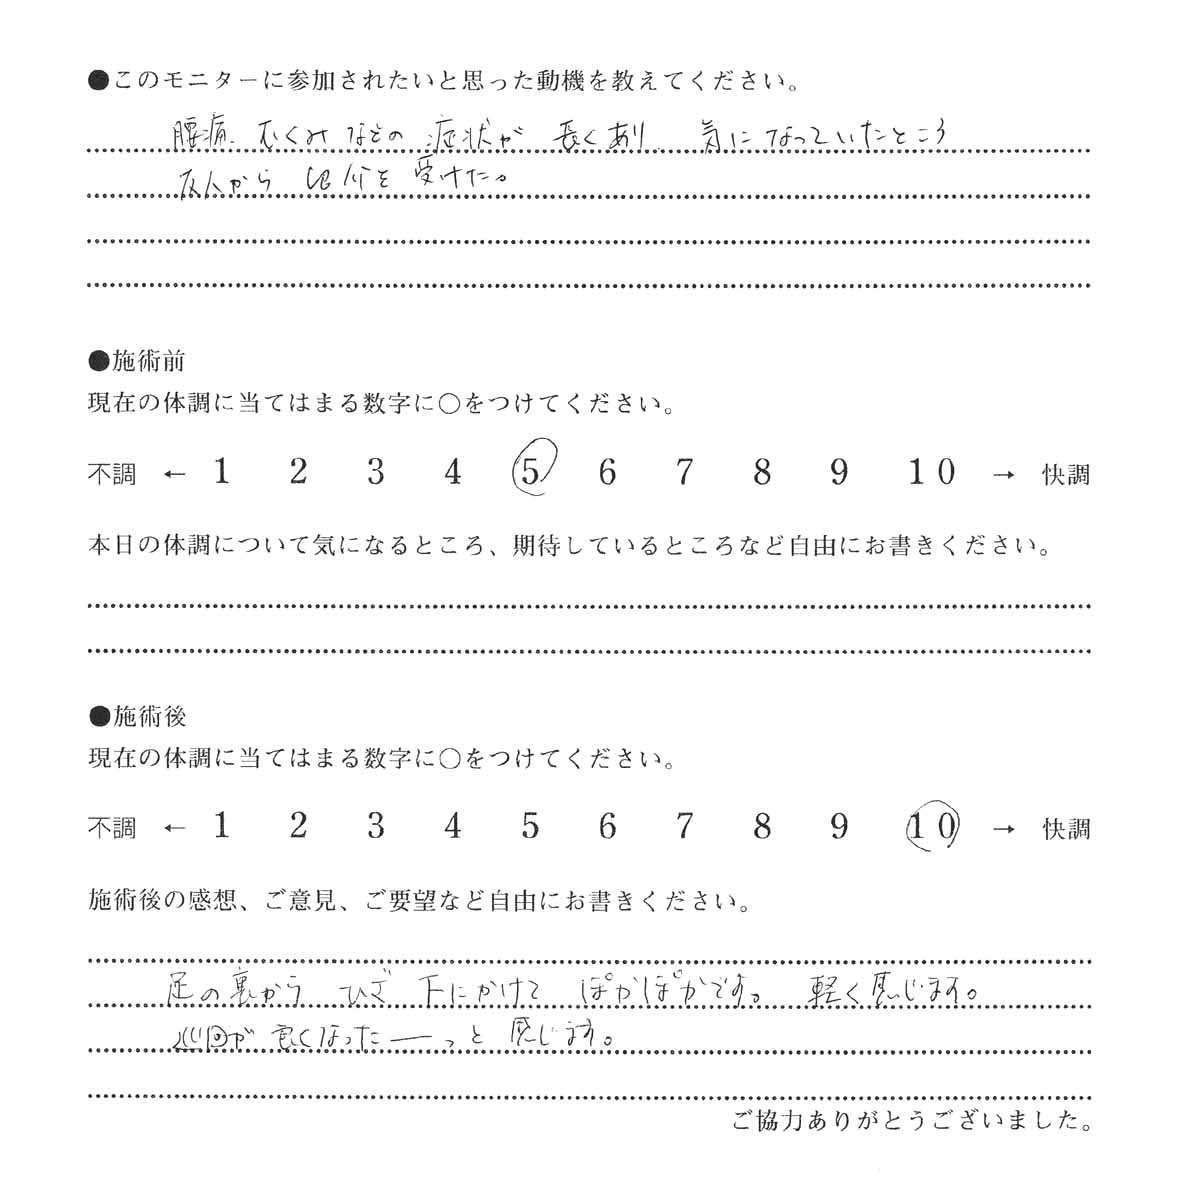 ●このモニターに参加されたいと思った動機を教えてください。
腰痛、むくみなどの症状が長くあり、気になっていたところ
友人から紹介を受けた。
●施術前
現在の体調に当てはまる数字に○をつけてください。
不調 ← 1 2 3 4 5 6 7 8 9 10 → 快調
本日の体調について気になるところ、期待しているところなど自由にお書きください。
●施術後
現在の体調に当てはまる数字に○をつけてください。
不調 ← 1 2 3 4 5 6 7 8 9 10 → 快調
施術後の感想、ご意見、ご要望など自由にお書きください。
足の裏からひざ下にかけてぽかぽかです。軽く感じます。
巡回が良くなったーっと感じます。
ご協力ありがとうございました。